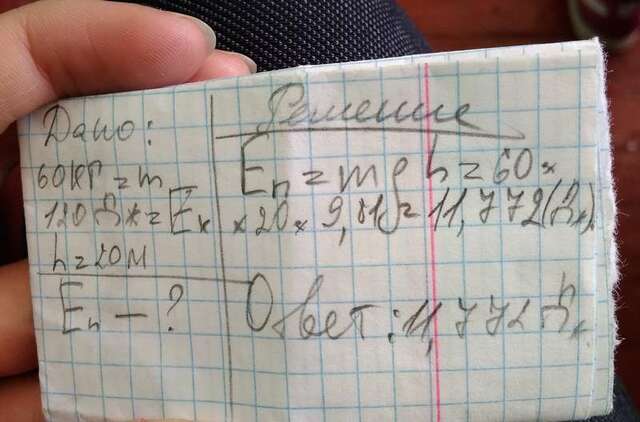 Дано:
60кг = m
120 Дж = Eк
h = 20 м
Eп — ?
Решение
Eп = mgh = 60 ×
× 20 × 9,81 = 11,772 (Дж)
Ответ: 11,772 Дж